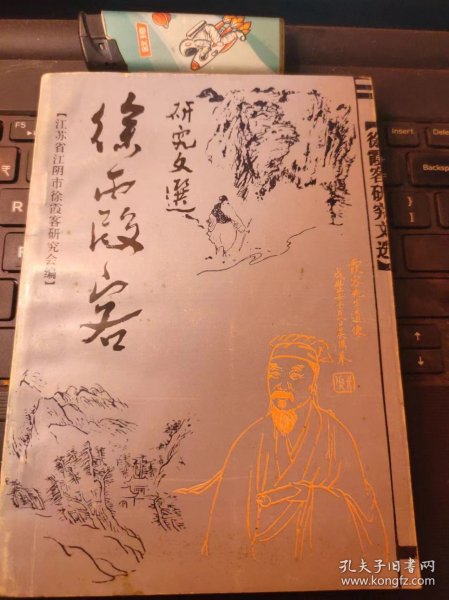 徐霞客
研究文选
【江苏省江阴市徐霞客研究会编】
徐霞客研究文选
霞客先生遗像
F5
Insert
Delete
孔夫子旧书网
www.kongfz.com